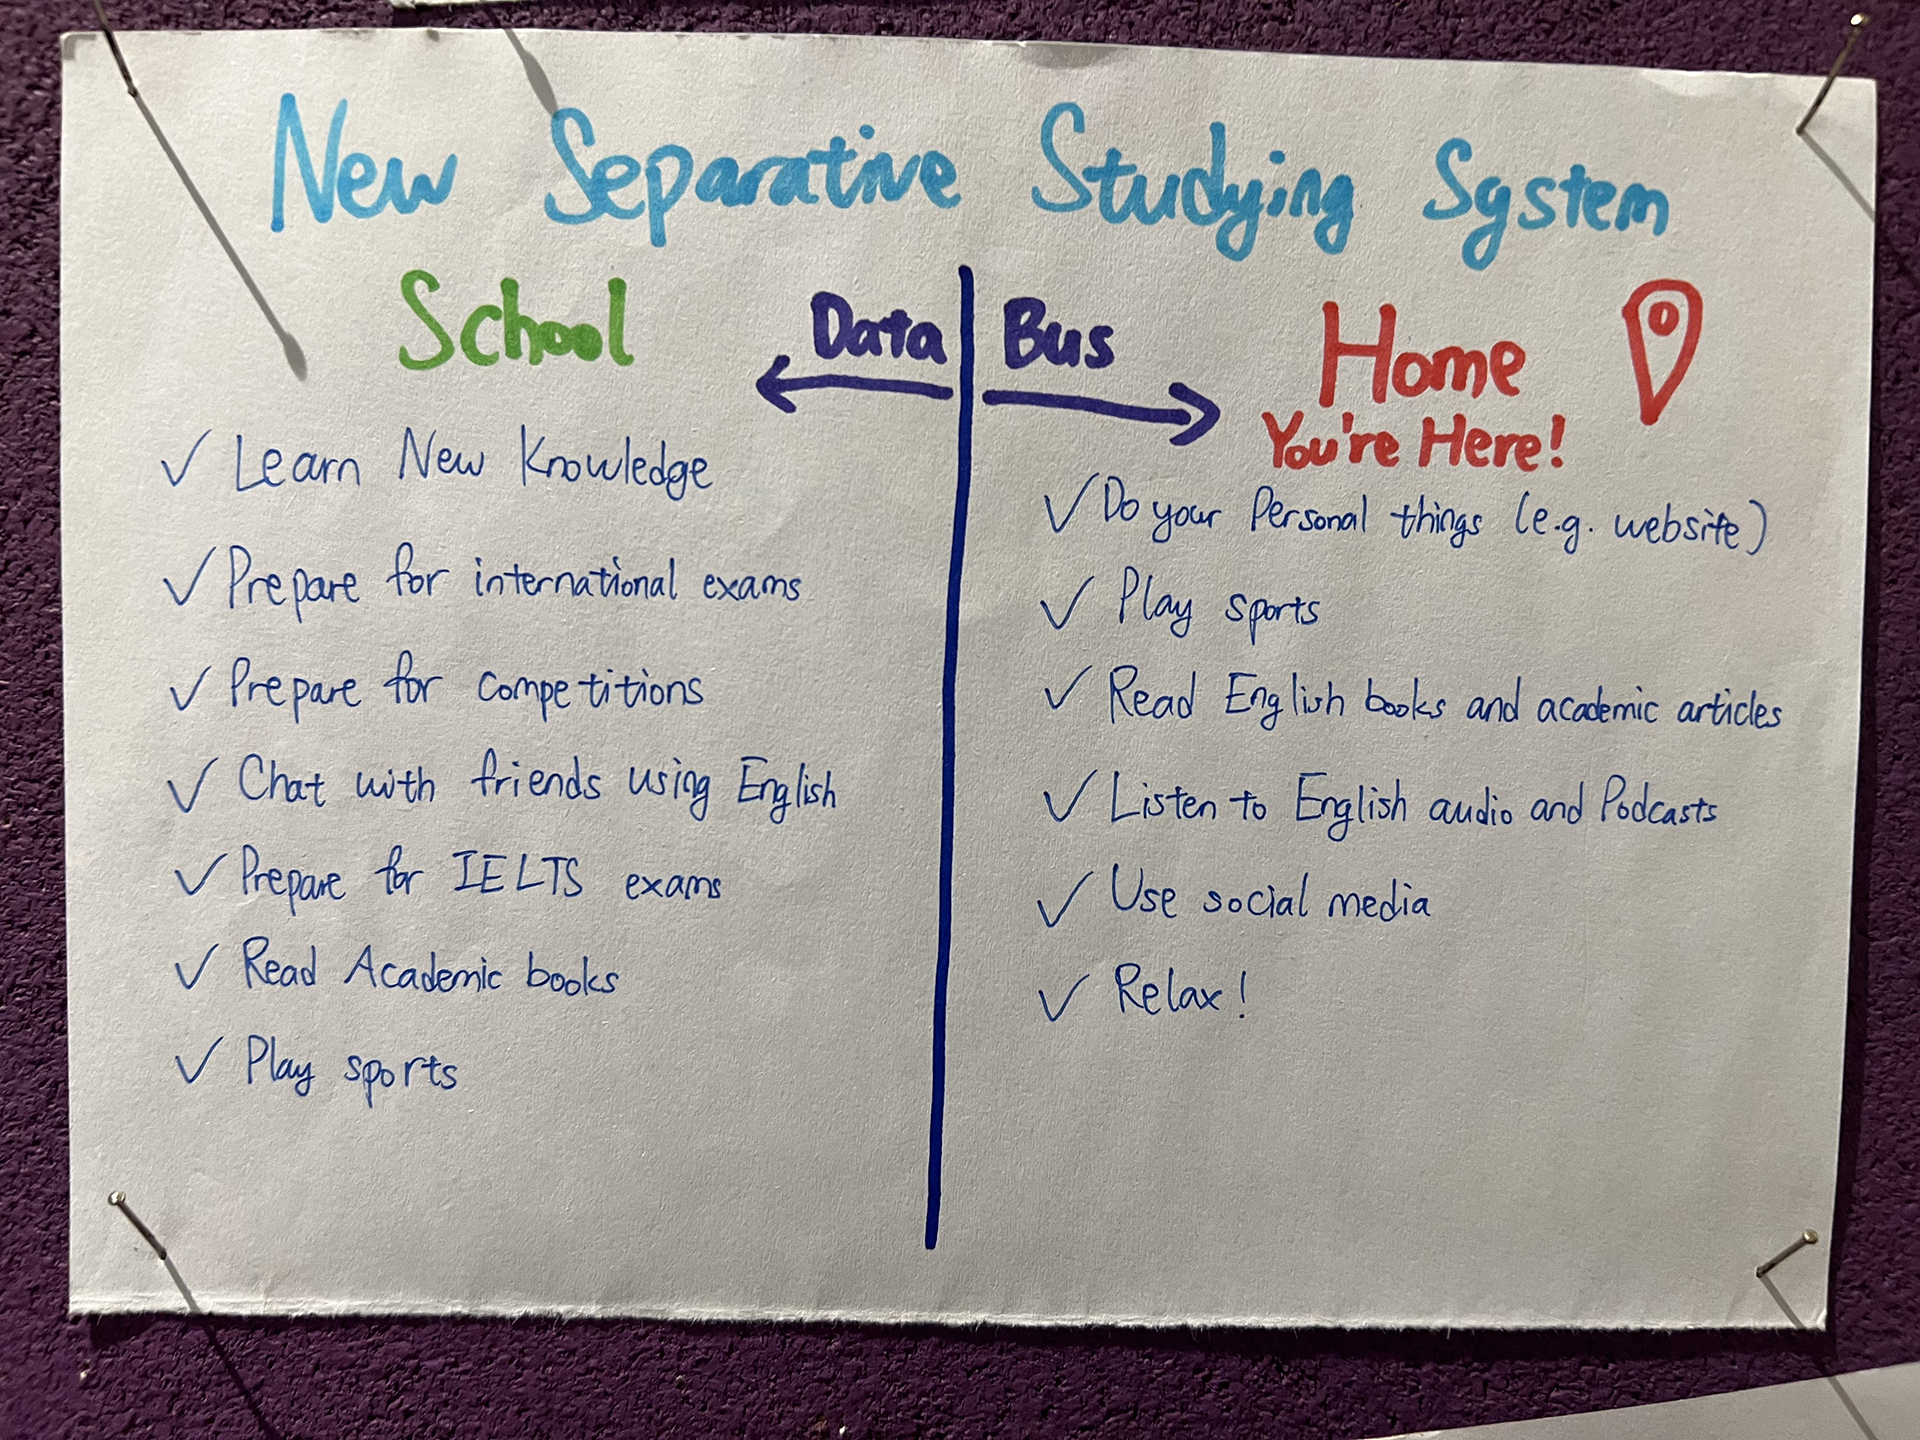 New Separative Studying System
School
Data Bus
Home
You're Here!
✓ Learn New Knowledge
✓ Prepare for international exams
✓ Prepare for competitions
✓ Chat with friends using English
✓ Prepare for IELTS exams
✓ Read Academic books
✓ Play sports
✓ Do your Personal things (e.g. website)
✓ Play sports
✓ Read English books and academic articles
✓ Listen to English audio and Podcasts
✓ Use social media
✓ Relax!